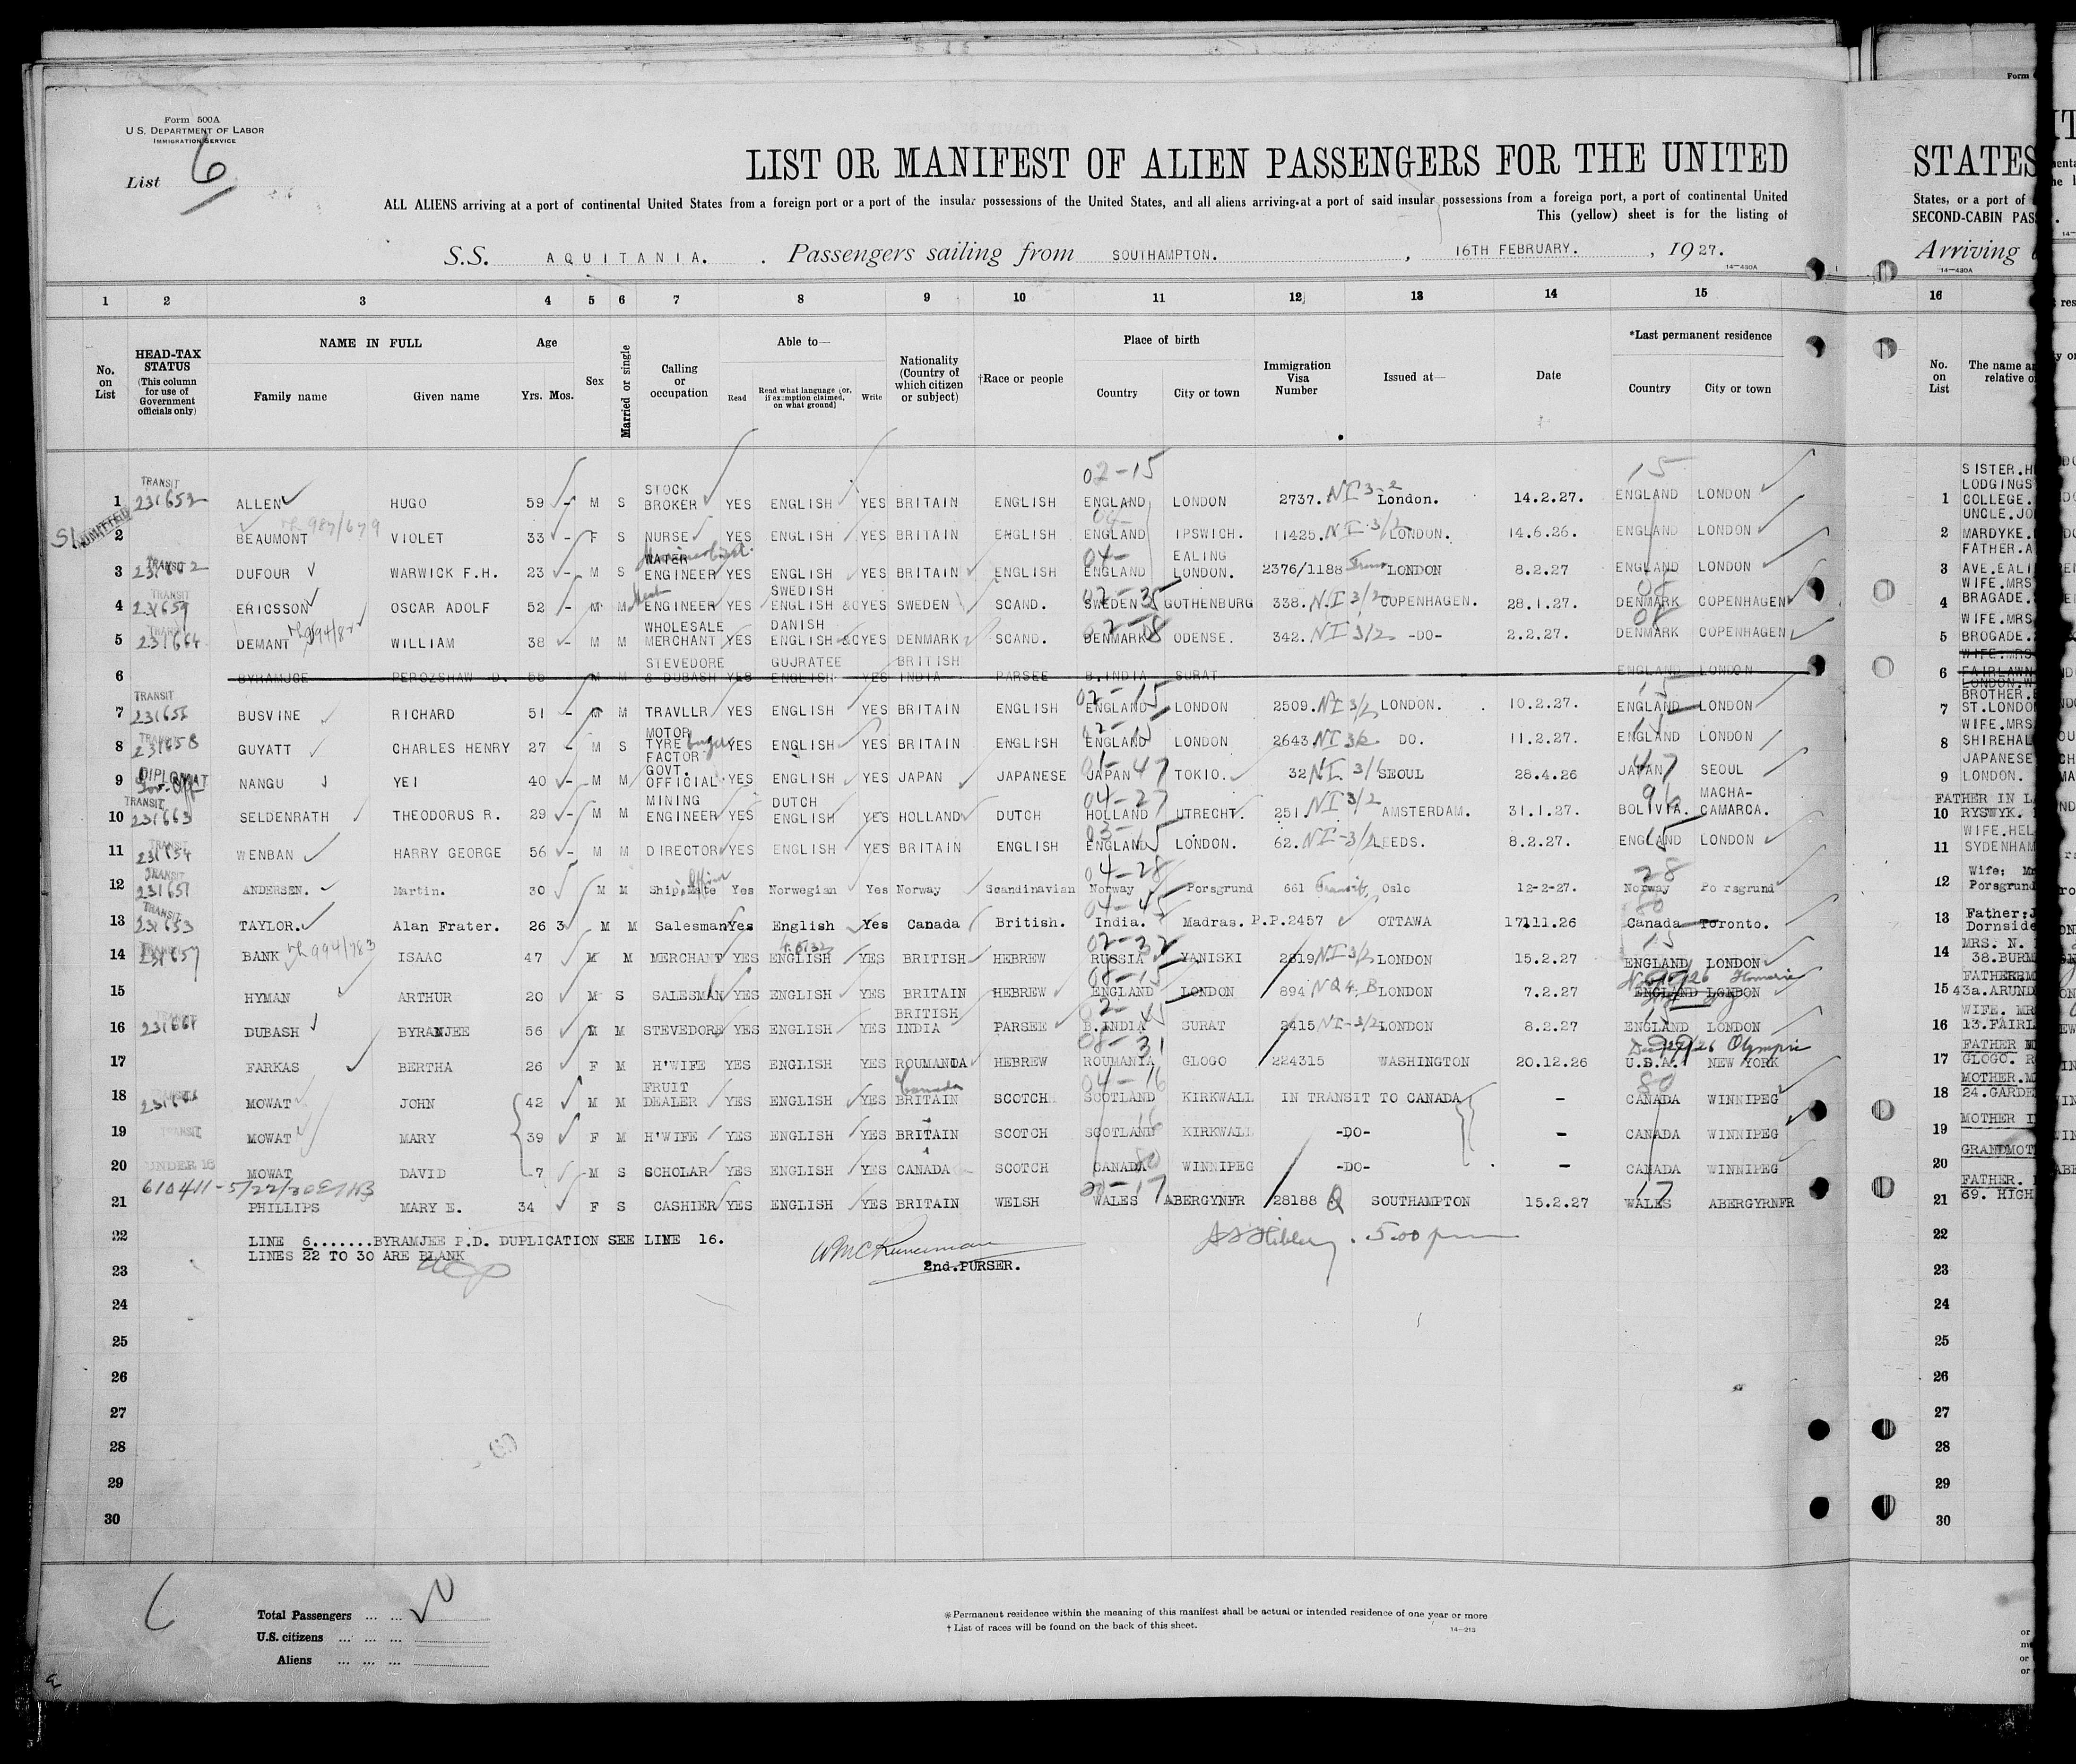 Form 500A
U.S. DEPARTMENT OF LABOR
IMMIGRATION SERVICE
List 6
LIST OR MANIFEST OF ALIEN PASSENGERS FOR THE UNITED
STATES
ALL ALIENS arriving at a port of continental United States from a foreign port or a port of the insular possessions of the United States, and all aliens arriving at a port of said insular possessions from a foreign port, a port of continental United
States, or a port of
This (yellow) sheet is for the listing of
SECOND-CABIN PAS
S.S. AQUITANIA. Passengers sailing from SOUTHAMPTON. , 16TH FEBRUARY. , 1927.
Arriving
14-430A
1 2 3 4 5 6 7 8 9 10 11 12 13 14 15 16
No. on List
HEAD-TAX STATUS (This column for use of Government officials only)
NAME IN FULL Family name Given name
Age Yrs. Mos.
Sex
Married or single
Calling or occupation
Able to— Read Read what language (or, if exemption claimed, on what ground) Write
Nationality (Country of which citizen or subject)
†Race or people
Place of birth Country City or town
Immigration Visa Number
Issued at—
Date
*Last permanent residence Country City or town
No. on List
The name a
relative o
1 TRANSIT 231652 ALLEN HUGO 59 - M S STOCK BROKER YES ENGLISH YES BRITAIN ENGLISH 02-15 ENGLAND LONDON 2737. NI 3-2 London. 14.2.27. 15 ENGLAND LONDON
2 ADMITTED BEAUMONT VIOLET 33 - F S NURSE YES ENGLISH YES BRITAIN ENGLISH ENGLAND IPSWICH. 11425. NI-3/2 LONDON. 14.6.26. ENGLAND LONDON
3 TRANSIT DUFOUR WARWICK F.H. 23 - M S WATER ENGINEER YES ENGLISH YES BRITAIN ENGLISH 04- ENGLAND EALING LONDON. 2376/1188 LONDON 8.2.27 ENGLAND LONDON
4 TRANSIT 231659 ERICSSON OSCAR ADOLF 52 - M M ENGINEER YES SWEDISH ENGLISH &C YES SWEDEN SCAND. SWEDEN GOTHENBURG 338. N.I 3/2 COPENHAGEN. 28.1.27. 08 DENMARK COPENHAGEN
5 TRANSIT 231664 DEMANT WILLIAM 38 - M M WHOLESALE MERCHANT YES DANISH ENGLISH &C YES DENMARK SCAND. DENMARK ODENSE. 342. NI 3/2 -DO- 2.2.27. 08 DENMARK COPENHAGEN
6 BYRAMJEE PEROZSHAW D. 55 M M STEVEDORE & DUBASH YES GUJRATEE ENGLISH YES BRITISH INDIA PARSEE B.INDIA SURAT ENGLAND LONDON
7 TRANSIT BUSVINE RICHARD 51 - M M TRAVLLR YES ENGLISH YES BRITAIN ENGLISH 02-15 ENGLAND LONDON 2509. NI 3/2 LONDON. 10.2.27. 15 ENGLAND LONDON
8 TRANSIT 231658 GUYATT CHARLES HENRY 27 - M S MOTOR TYRE FACTOR YES ENGLISH YES BRITAIN ENGLISH 02-15 ENGLAND LONDON 2643 NI 3/2 DO. 11.2.27. ENGLAND LONDON
9 DIPLOMAT Gov. Off NANGU YEI 40 - M M GOVT. OFFICIAL YES ENGLISH YES JAPAN JAPANESE 01-47 JAPAN TOKIO. 32 NI. 3/6 SEOUL 28.4.26 47 JAPAN SEOUL
10 TRANSIT 231663 SELDENRATH THEODORUS R. 29 - M M MINING ENGINEER YES DUTCH ENGLISH YES HOLLAND DUTCH 04-27 HOLLAND UTRECHT. 251 NI 3/2 AMSTERDAM. 31.1.27. 96 BOLIVIA. MACHA-CAMARCA.
11 TRANSIT 231654 WENBAN HARRY GEORGE 56 - M M DIRECTOR YES ENGLISH YES BRITAIN ENGLISH 03-15 ENGLAND LONDON. 62. NI-3/2 LEEDS. 8.2.27. 15 ENGLAND LONDON
12 TRANSIT 231651 ANDERSEN. Martin. 30 M M Ship Mate Officer Yes Norwegian Yes Norway Scandinavian 04-28 Norway Porsgrund 661 Transit, Oslo 12-2-27. 28 Norway Porsgrund
13 TRANSIT 231653 TAYLOR. Alan Frater. 26 3 M M Salesman Yes English Yes Canada British. 04-45 India. Madras. P.P.2457 OTTAWA 17.11.26 80 Canada Toronto.
14 TRANSIT 231657 BANK ISAAC 47 M M MERCHANT YES ENGLISH YES BRITISH HEBREW 02-32 RUSSIA YANISKI 2819 NI 3/2 LONDON 15.2.27 15 ENGLAND LONDON
15 HYMAN ARTHUR 20 M S SALESMAN YES ENGLISH YES BRITAIN HEBREW 08-15 ENGLAND LONDON 894 NQ 4, B LONDON 7.2.27 Homeric ENGLAND LONDON
16 TRANSIT 231661 DUBASH BYRAMJEE 56 M M STEVEDORE YES ENGLISH YES BRITISH INDIA PARSEE B.INDIA SURAT 2415 NI-3/2 LONDON 8.2.27 15 ENGLAND LONDON
17 FARKAS BERTHA 26 F M H'WIFE YES ENGLISH YES ROUMANDA HEBREW 08-31 ROUMANIA GLOGO 224315 WASHINGTON 20.12.26 Olympic U.S.A. NEW YORK
18 MOWAT JOHN 42 M M FRUIT DEALER YES ENGLISH YES Canada BRITAIN SCOTCH 04-16 SCOTLAND KIRKWALL IN TRANSIT TO CANADA - 80 CANADA WINNIPEG
19 TRANSIT MOWAT MARY 39 F M H'WIFE YES ENGLISH YES BRITAIN SCOTCH 16 SCOTLAND KIRKWALL -DO- - CANADA WINNIPEG
20 UNDER 16 MOWAT DAVID 7 M S SCHOLAR YES ENGLISH YES CANADA SCOTCH 80 CANADA WINNIPEG -DO- - CANADA WINNIPEG
21 610411-5/22/30 PHILLIPS MARY E. 34 F S CASHIER YES ENGLISH YES BRITAIN WELSH WALES ABERGYNFR 28188 Q SOUTHAMPTON 15.2.27 17 WALES ABERGYRNFR
22 LINE 6.......BYRAMJEE P.D. DUPLICATION SEE LINE 16.
LINES 22 TO 30 ARE BLANK
5.00 pm
23 2nd.PURSER.
24
25
26
27
28
29
30
SISTER.H
LODGINGS
1 COLLEGE.
UNCLE.JO
2 MARDYKE.
FATHER.A
3 AVE.EALI
WIFE.MRS
4 BRAGADE.
WIFE.MRS
5 BROGADE.
WIFE.MRS
6 FAIRLAWN
LONDON.W
BROTHER.
7 ST.LONDO
WIFE.MRS
8 SHIREHAL
JAPANESE
9 LONDON.
FATHER IN L
10 RYSWYK.
WIFE.HEL
11 SYDENHAM
12 Wife: M
Porsgrund
13 Father:J
Dornside
14 MRS. N.
38.BURM
15 43a.ARUND
WIFE. MR
16 13.FAIRL
FATHER
17 GLOGO. R
MOTHER.M
18 24.GARDE
19 MOTHER I
20 GRANDMOT
FATHER.
21 69. HIGH
22
23
24
25
26
27
28
29
30
Total Passengers ... ...
U.S. citizens ... ... ...
Aliens ... ... ...
*Permanent residence within the meaning of this manifest shall be actual or intended residence of one year or more
† List of races will be found on the back of this sheet.
14-213